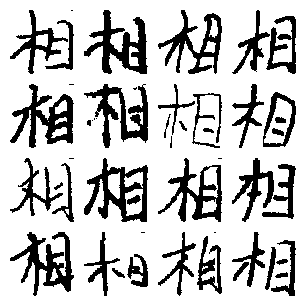 相相相相
相相相相
相相相相
相相相相